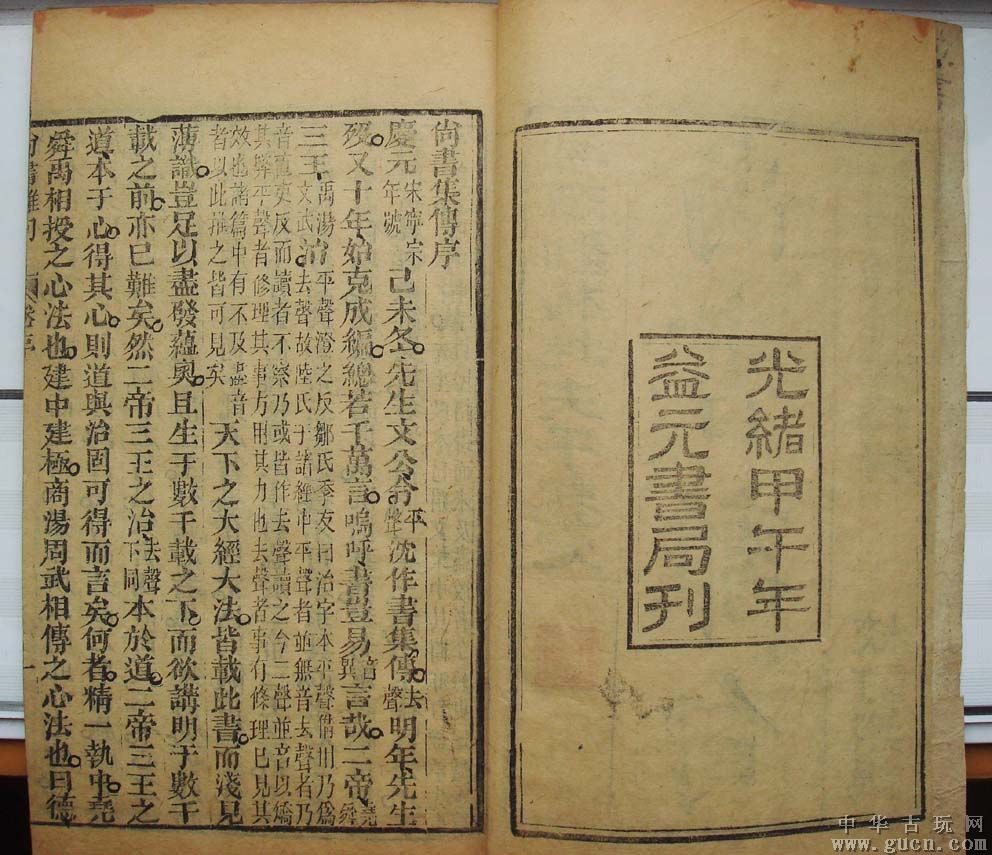 光緒甲午年
益元書局刊
尚書集傳序
慶元宋寧宗年號己未冬先生文公令平聲沈作書集傳去聲明年先生
歿又十年始克成編總若干萬言嗚呼書豈易音異言哉二帝堯舜
三王禹湯文武治平聲澄之反鄒氏季友曰治字本平聲借用乃爲去聲故陸氏于諸經中平聲者並無音去聲者乃
音直吏反而讀者不察乃或皆作去聲讀之今二聲並音以矯
其弊平聲者修理其事方用其力也去聲者事有條理已見其
效也諸篇中有不及盡音者以此推之皆可見矣天下之大經大法皆載此書而淺見
薄識豈足以盡發蘊奧且生于數千載之下而欲講明于數千
載之前亦已難矣然二帝三王之治去聲下同本於道二帝三王之
道本于心得其心則道與治固可得而言矣何者精一執中堯
舜禹相授之心法也建中建極商湯周武相傳之心法也曰德
中华古玩网
www.gucn.com